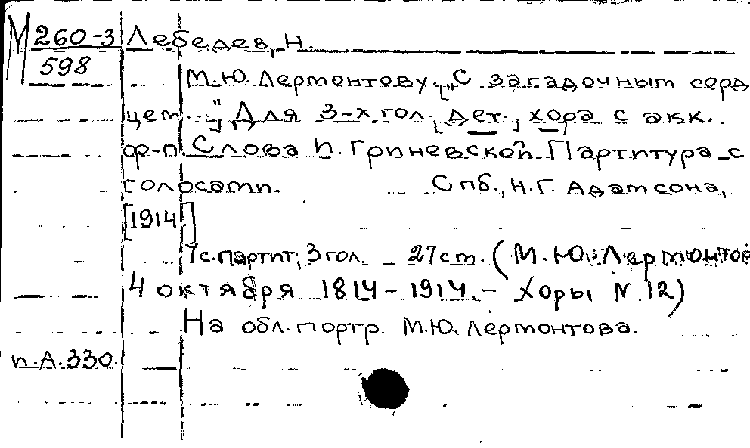 М 260-3 Лебедев, Н.
598
М.Ю. Лермонтову. "С загадочным серд
цем..." Для 3-х гол. дет. хора с акк.
ф-п. Слова П. Гриневской. Партитура с
голосами. Спб., Н.Г. Адамсона,
[1914]
7с. партит., 3 гол. 27 ст. (М. Ю. Лермонтов
4 октября 1814-1914. - Хоры N. 12)
На обл. портр. М.Ю. Лермонтова.
п. А. 330.